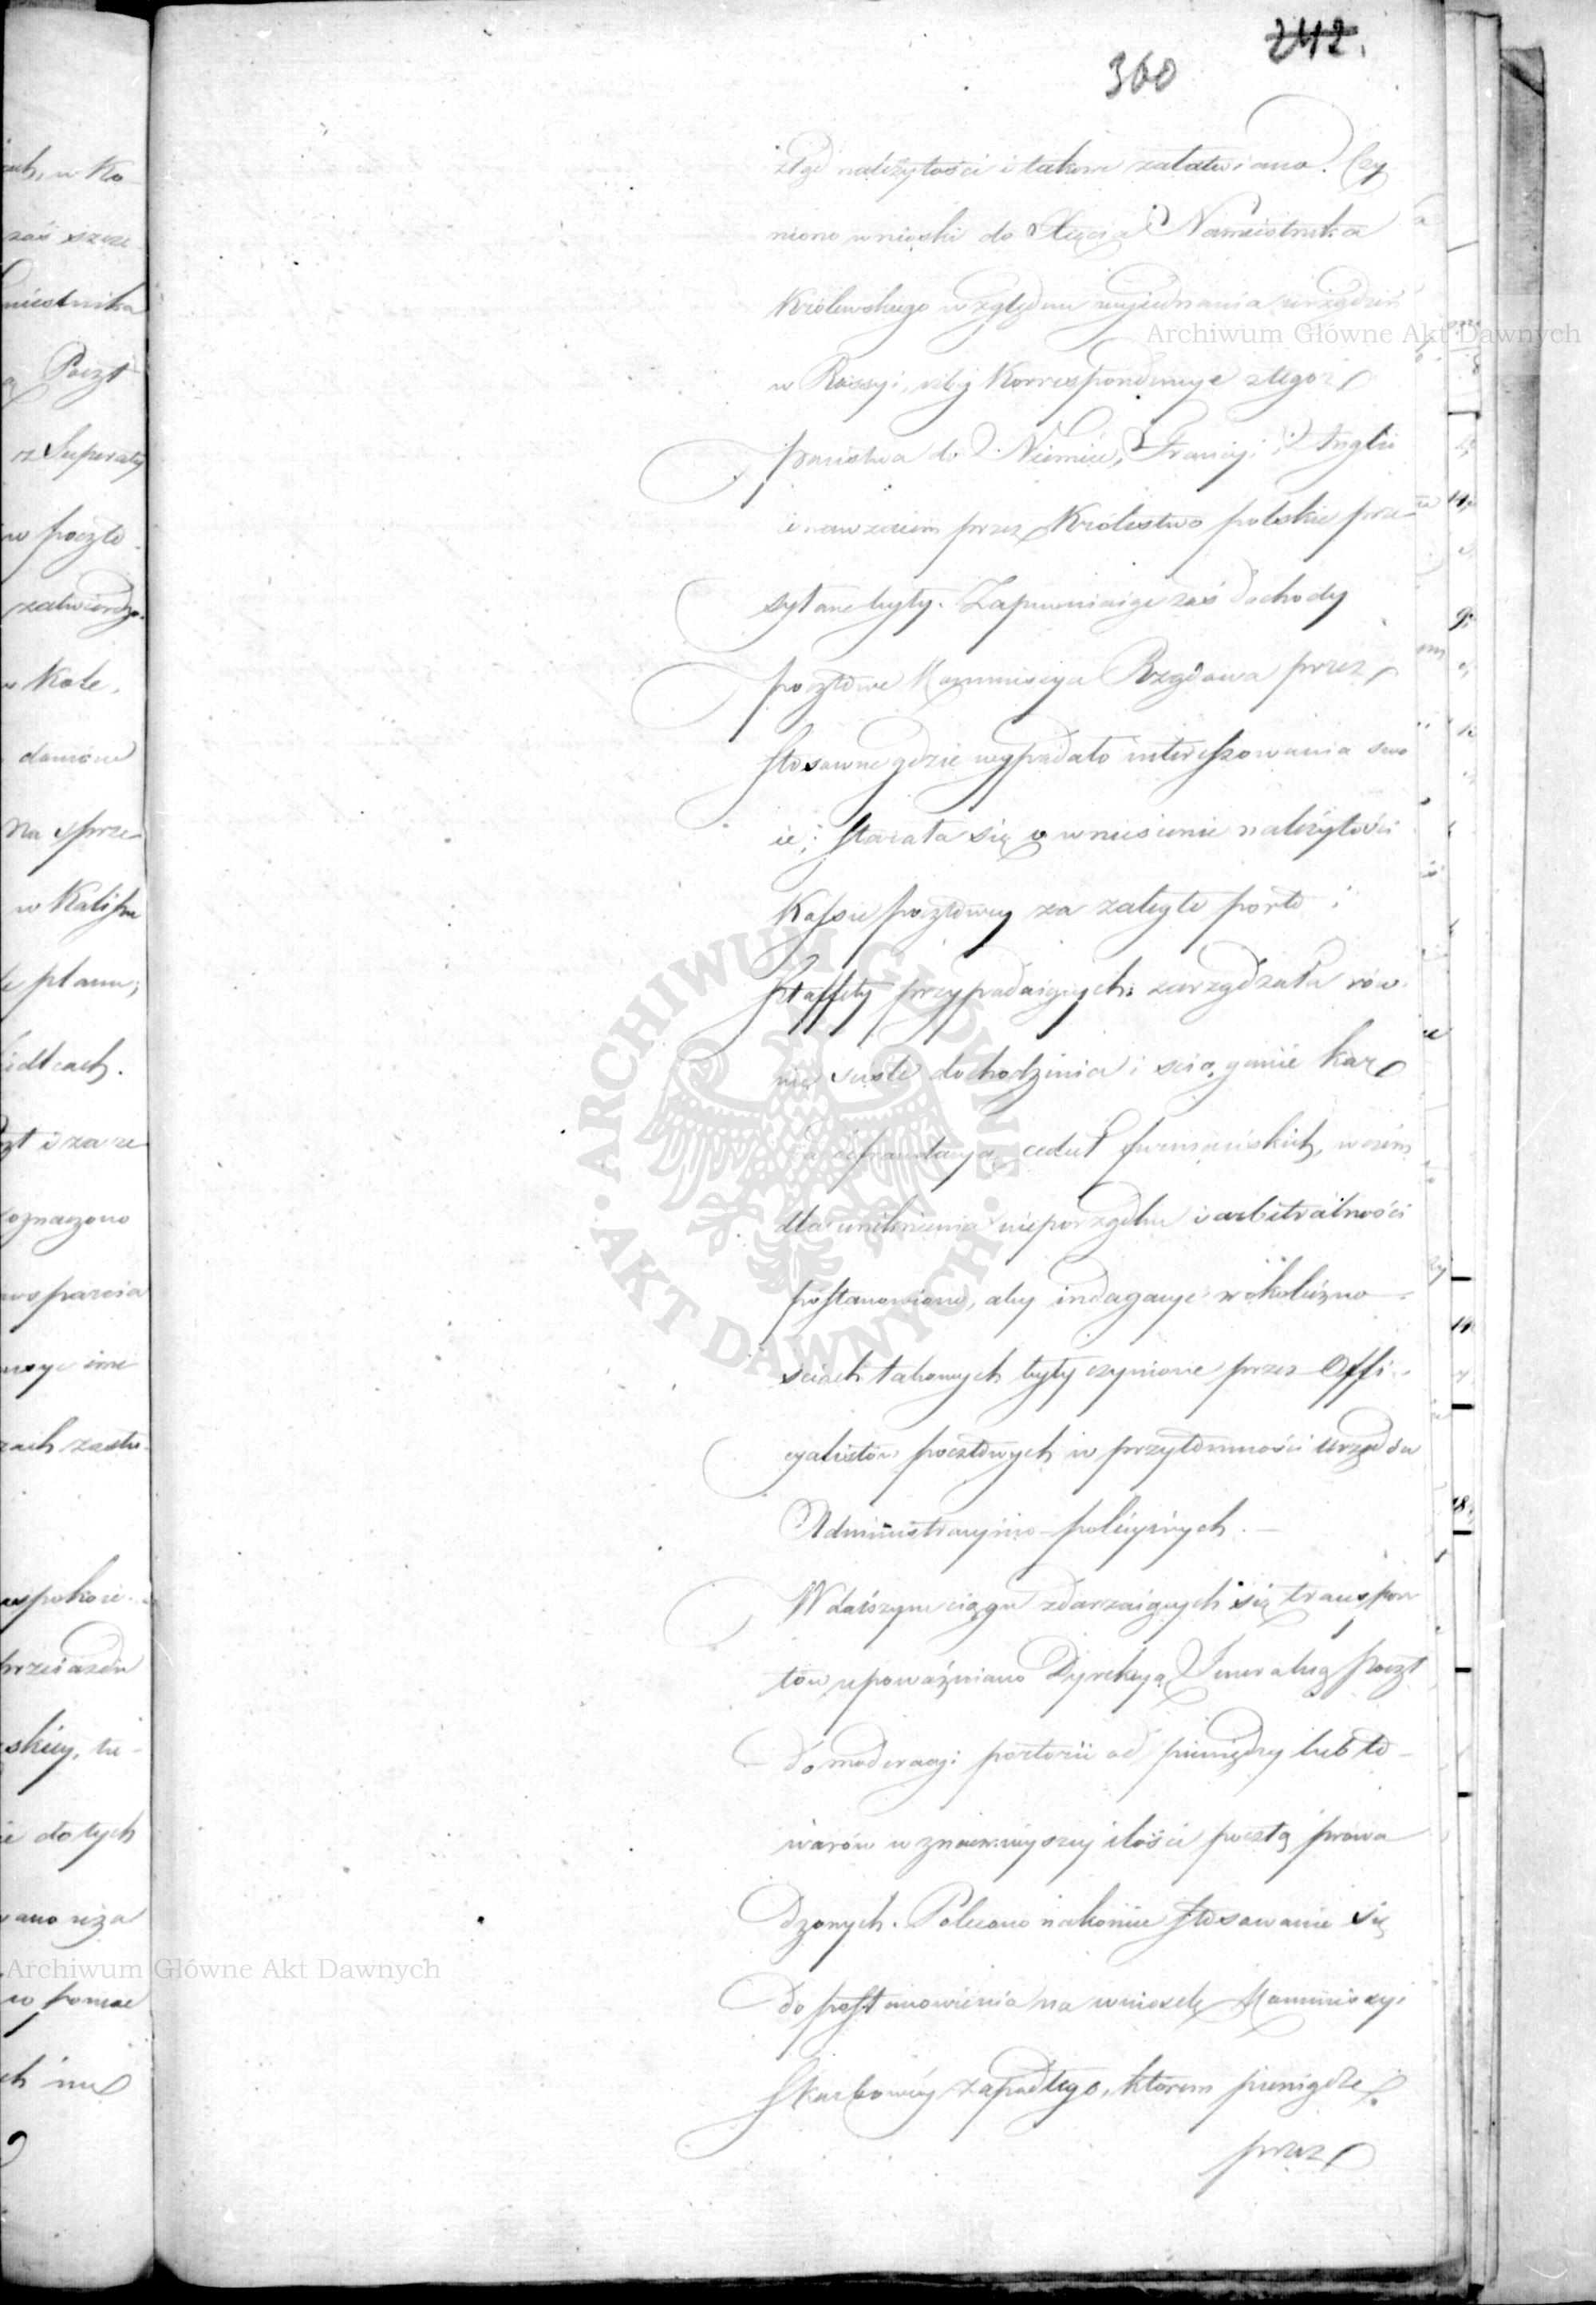 242.
360
ztąd należytości i takowe załatwiano. Czy
niono wnioski do Xięcia Namiestnika
Królewskiego względem wyjednania urządzeń
w Rossyi, iżby Korrespondencye z tegoż
państwa do Niemiec, Francyi, i Anglii
i nawzaiem przez Królestwo polskie prze
syłane były. Zapewniaiąc zaś dochody
pocztowe Kommissya Rządowa przez
stosowne gdzie wypadało interessowania swo
ie; starała się o wniesienie należytości
Kassie pocztowey za zaległe porto i
sztafety przypadaiących: zarządzała rów
nie ścisłe dochodzenia i ściąganie kar
za defraudacyą ceduł furmańskich, w czém
dla uniknienia nieporządku i arbitralności
postanowiono, aby indagacye w okoliczno
ściach takowych były czynione przez Offi
cyalistów pocztowych w przytomności Urzędów
Administracyjno-policyjnych.
W dalszym ciągu zdarzaiących się transpor
tów upoważniano Dyrekcyą Jeneralną Poczt
do moderacyi portorii od pieniędzy lub to
warów w znacznieyszey ilości pocztą prowa
dzonych. Polecono nakoniec stosowanie się
do postanowienia na wniosek Kommissyi
Skarbowéy zapadłego, którem pieniądze
przez
ach, w Ko
zaś szcze
miestnika
Poczt
Superaty
w poczto
zatwierdzo
w Kole,
Na sprze
w Kaliszu
planu;
Siedlcach.
i za
oznaczono
wsparcia
zasłu
uspokoie
przeiazdu
do tych
Archiwum Główne Akt Dawnych
ARCHIWUM GŁÓWNE AKT DAWNYCH
Archiwum Główne Akt Dawnych